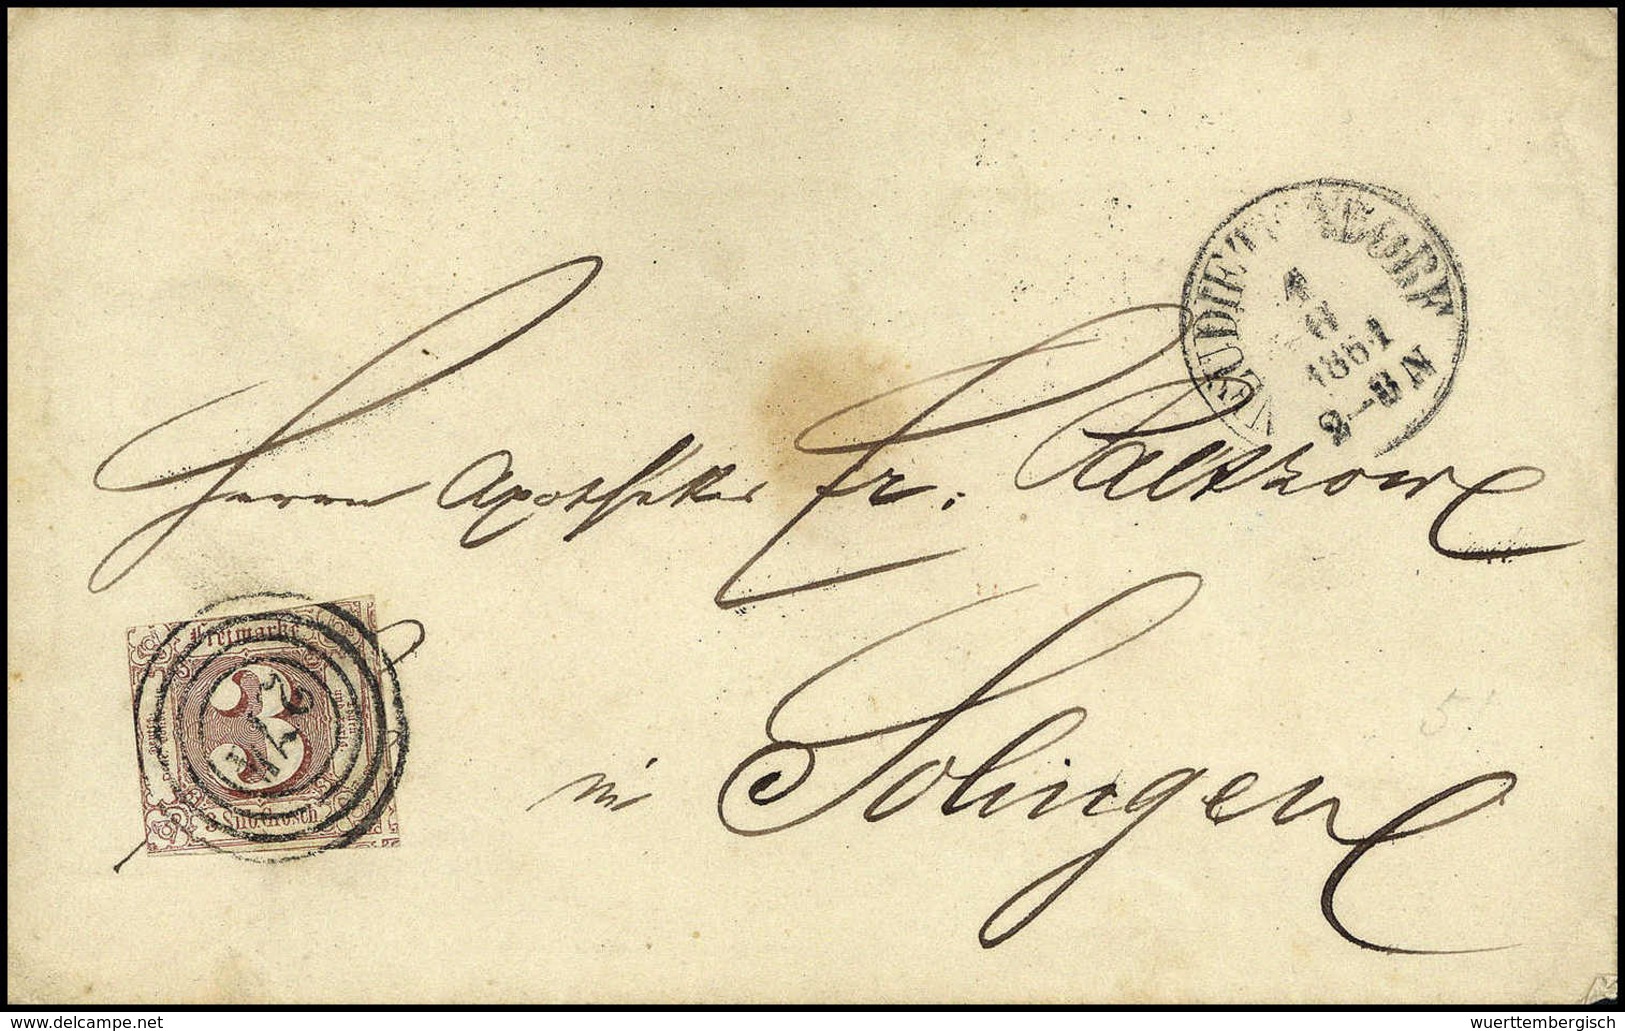 NEUDIETENDORF
1
8
1861
2–3 N
Herrn Apotheker Fr: Paltzow
in Solingen
Freimarke
3
3 Silb.Grosch.
delcampe.net
wuerttembergisch